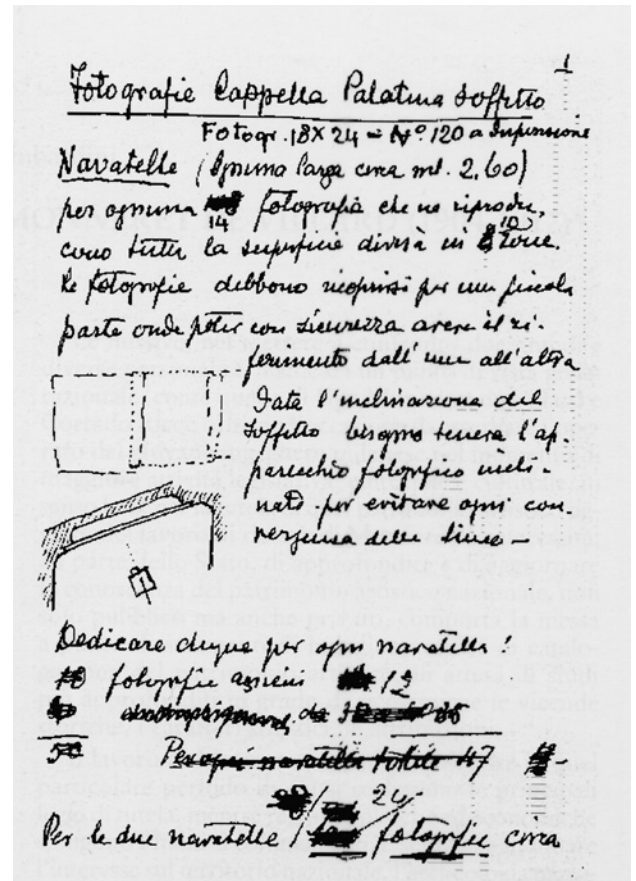 1
Fotografie Cappella Palatina Soffitto
Fotogr. 18X24 = N° 120 a Dispensione
Navatelle (Ognuna larga circa ml. 2,60)
per ognuna 14 fotografia che ne riprodu,
cono tutta la superficie divisa in 10 zone.
Le fotografie debbono ricoprirsi per una piccola
parte onde poter con sicurezza avere il ri-
ferimento dall'una all'altra
Data l'inclinazione del
soffitto bisogna tenere l'ap-
parecchio fotogrfico incli-
nato per evitare ogni con-
vergenza delle linee —
Dedicare dunque per ogni navatella:
fotografie assieme 12
Per ogni navatella totale 47
24
Per le due navatelle fotogrfie circa